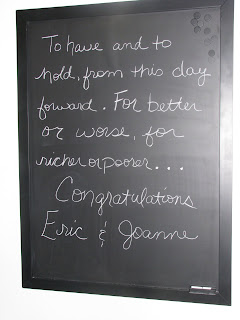 To have and to
hold, from this day
forward. For better
or worse, for
richer or poorer...
Congratulations
Eric & Joanne